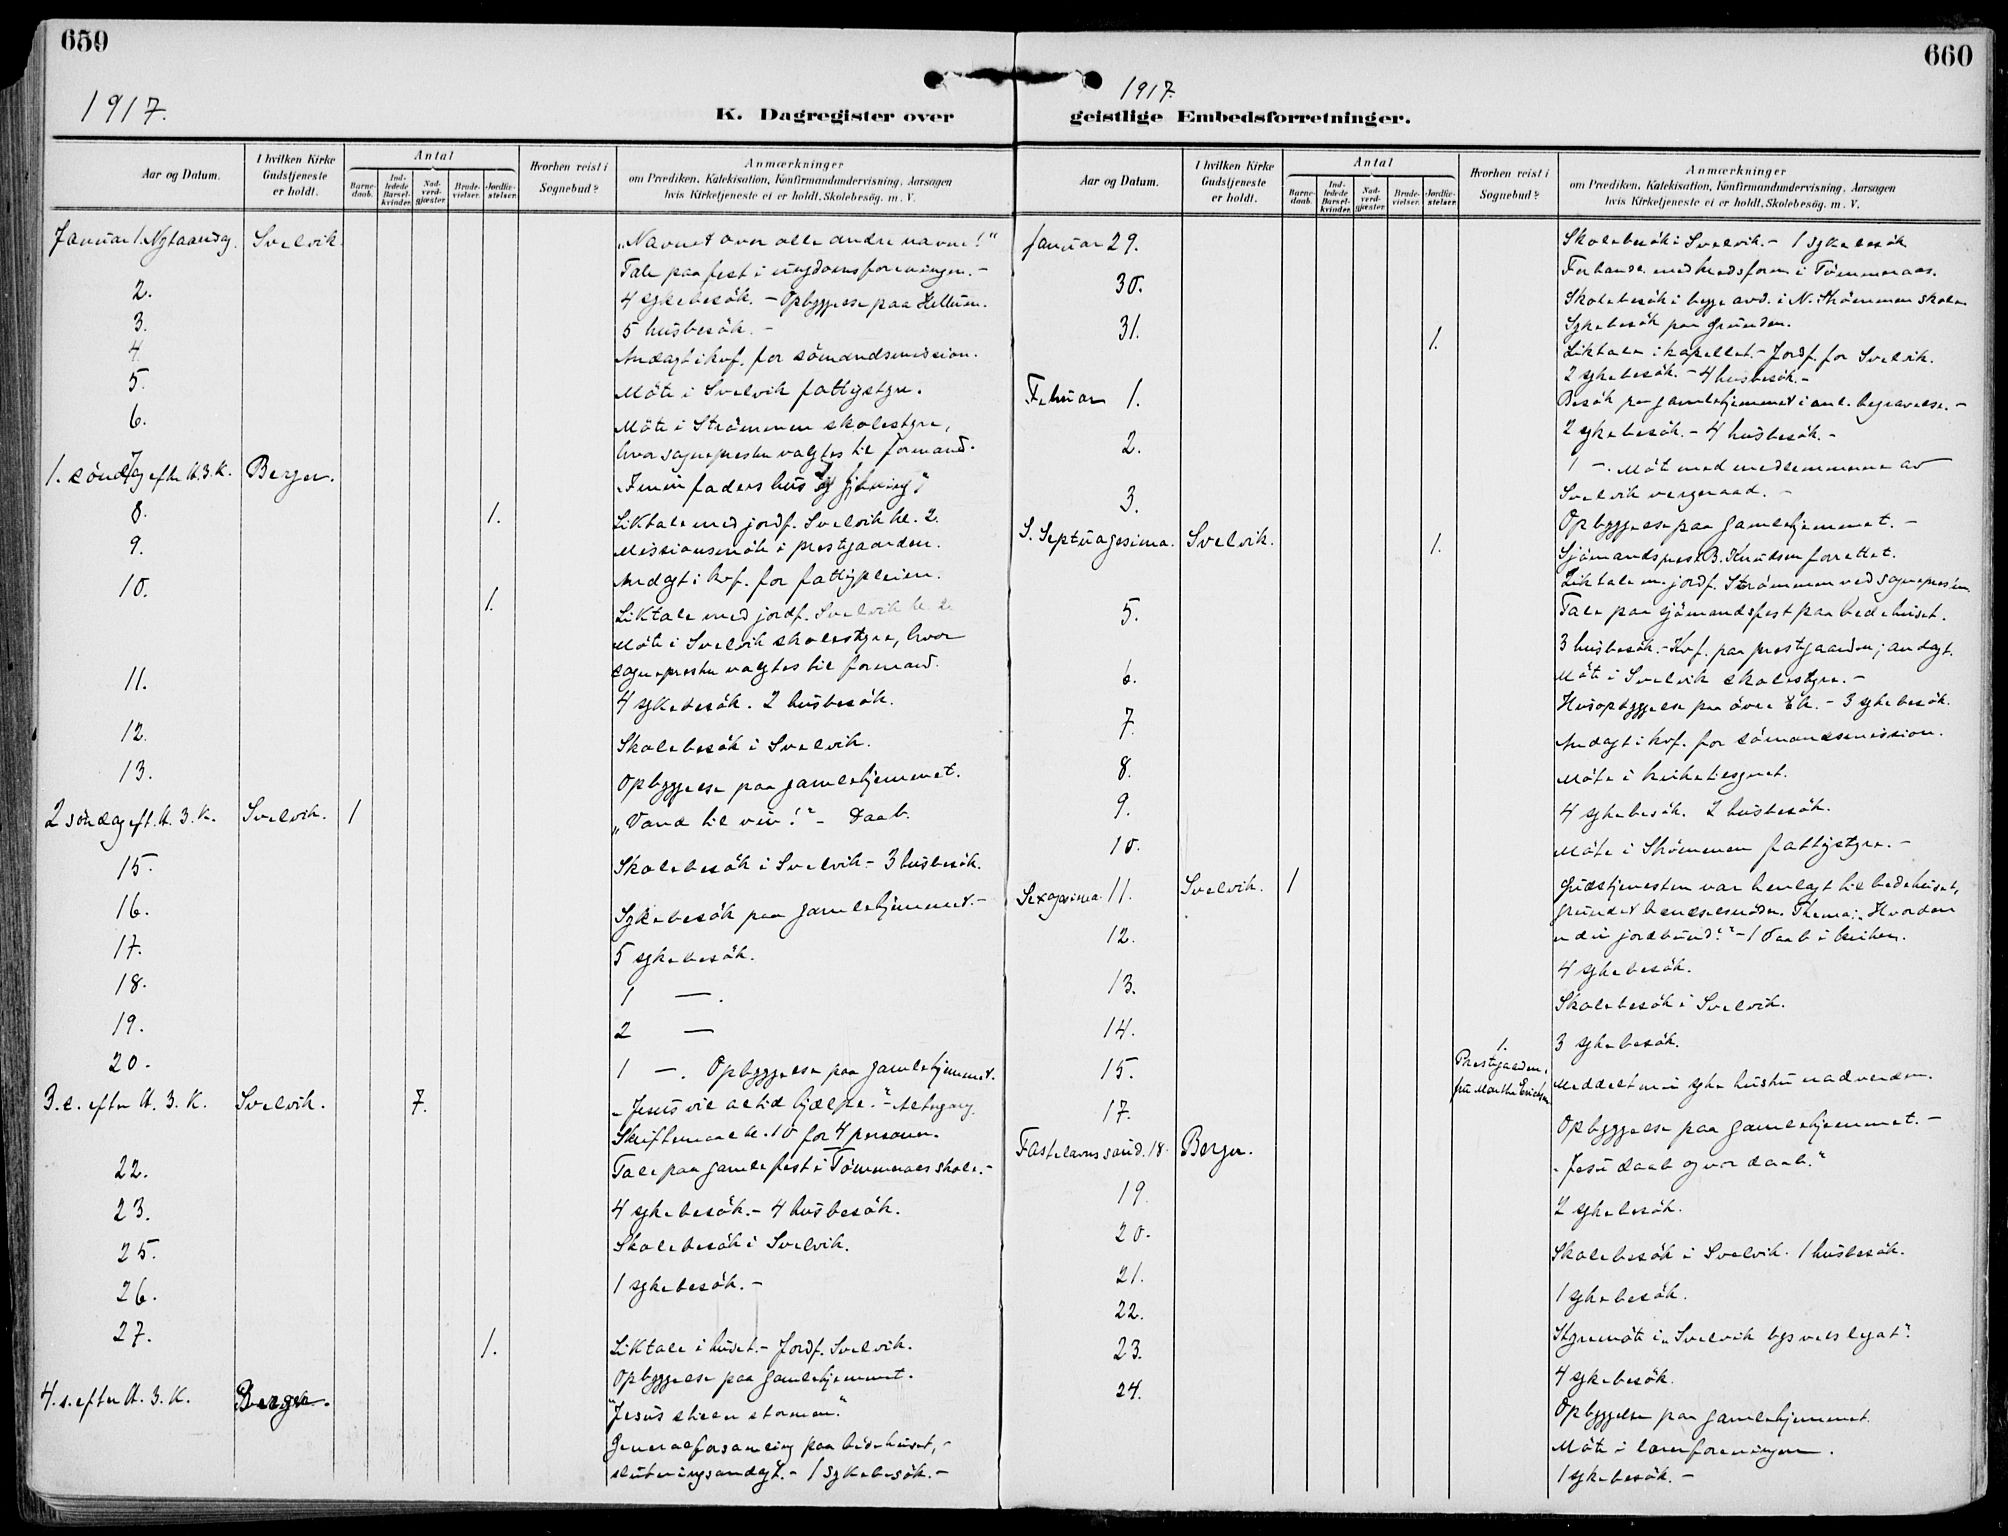 659
1917.
K. Dagregister over
Aar og Datum.
I hvilken Kirke Gudstjeneste er holdt.
Antal
Barnedaab.
Indledede Barselkvinder.
Nadverdgjæster.
Brudevielser.
Jordfæstelser.
Hvorhen reist i Sognebud?
Anmærkninger
om Prædiken, Katekisation, Konfirmandundervisning, Aarsagen
hvis Kirketjeneste ei er holdt, Skolebesøg. m. V.
Januar 1. Nytaarsdag. Svelvik. „Navnet over alle andre navne!“
Tale paa fest i ungdomsforeningen. -
2. 4 sykebesök. - Opbyggelse paa Hellum.
3. 5 husbesök. -
4. Andagt i kvf. for sömandsmission.
5. Möte i Svelvik fattigstyre.
6. Möte i Strömmen skolestyre,
hvor sognepresten valgtes til formand.
1. söndag efter H.3.K. Berger. „I min faders hus og gjerning“
8. 1. Liktale med jordf. Svelvik kl. 2.
9. Missionsmöte i prestgaarden.
Andagt i kvf. for fattigpleien.
10. 1. Liktale med jordf. Svelvik kl. 2.
Möte i Svelvik skolestyre, hvor
sognepresten valgtes til formand.
11. 4 sykebesök. 2 husbesök.
12. Skolebesök i Svelvik.
13. Opbyggelse paa gamlehjemmet.
2 söndag eft. H. 3. K. Svelvik. 1 „Vand til vin!“ - Daab.
15. Skolebesök i Svelvik - 3 husbesök.
16. Sykebesök paa gamlehjemmet. -
17. 5 sykebesök.
18. 1 —.
19. 2 —
20. 1 —. Opbyggelse paa gamlehjemmet.
3. s. efter H. 3. K. Svelvik. 7. „Jesus vil altid hjælpe.“ - Altergang.
Skriftemaal kl. 10 for 4 personer.
22. Tale paa gamlefest i Tömmeraas skole. -
23. 4 sykebesök. - 4 husbesök.
25. Skolebesök i Svelvik.
26. 1 sykebesök. -
27. 1. Liktale i huset. - Jordf. Svelvik.
Opbyggelse paa gamlehjemmet.
4. s. efter H. 3. K. Berger. „Jesus stiller stormen.“
Generalforsamling paa bedehuset, -
slutningsandagt. - 1 sykebesök. -
660
1917.
geistlige Embedsforretninger.
Aar og Datum.
I hvilken Kirke Gudstjeneste er holdt.
Antal
Barnedaab.
Indledede Barselkvinder.
Nadverdgjæster.
Brudevielser.
Jordfæstelser.
Hvorhen reist i Sognebud?
Anmærkninger
om Prædiken, Katekisation, Konfirmandundervisning, Aarsagen
hvis Kirketjeneste ei er holdt, Skolebesøg. m. V.
Januar 29. Skolebesök i Svelvik. - 1 sykebesök
i Tömmeraas.
30. Skolebesök i begge avd. i N. Strömmen skole.
Sykebesök paa Grunden.
31. 1. Liktale i kapellet. - Jordf. for Svelvik.
2 sykebesök. - 4 husbesök. -
Februar 1. Besök paa gamlehjemmet i anl. begravelse. -
2 sykebesök. - 4 husbesök. -
2. 1 —. Möte med medlemmerne av
Svelvik vergeraad. -
3. Opbyggelse paa gamlehjemmet. -
S. Septuagesima. Svelvik. 1. Sjömandsprest B. Knudsen forrettet.
Liktale m. jordf. Strömmen ved sognepresten.
Tale paa sjömandsfest paa bedehuset.
5. 3 husbesök. - Kvf. paa prestgaarden; andagt.
6. Möte i Svelvik skolestyre. -
Husopbyggelse paa övre Ek. - 3 sykebesök.
7. Andagt i kvf. for sömandsmission.
8. Möte i
9. 4 sykebesök. 2 husbesök.
10. Möte i Strömmen fattigstyre. -
Sexagesima 11. Svelvik. 1 Gudstjenesten var henlagt til bedehuset,
grundet brændselsnöden. Thema: „Hvordan
er din jordbund?“ - 1 daab i kirken.
12. 4 sykebesök.
13. Skolebesök i Svelvik.
14. 3 sykebesök.
15. 1. Prestgaarden, fru Marthe Ericksen Meddelt min syke hustru nadverden.
17. Opbyggelse paa gamlehjemmet. -
Fastelavnssönd. 18. Berger. „Jesu daab og vor daab.“
19. 2 sykebesök.
20. Skolebesök i Svelvik. 1 husbesök.
21. 1 sykebesök.
22. Styremöte i „Svelvik bys vels legat“.
23. 4 sykebesök.
24. Opbyggelse paa gamlehjemmet.
Möte i lærerforeningen.
1 sykebesök. -